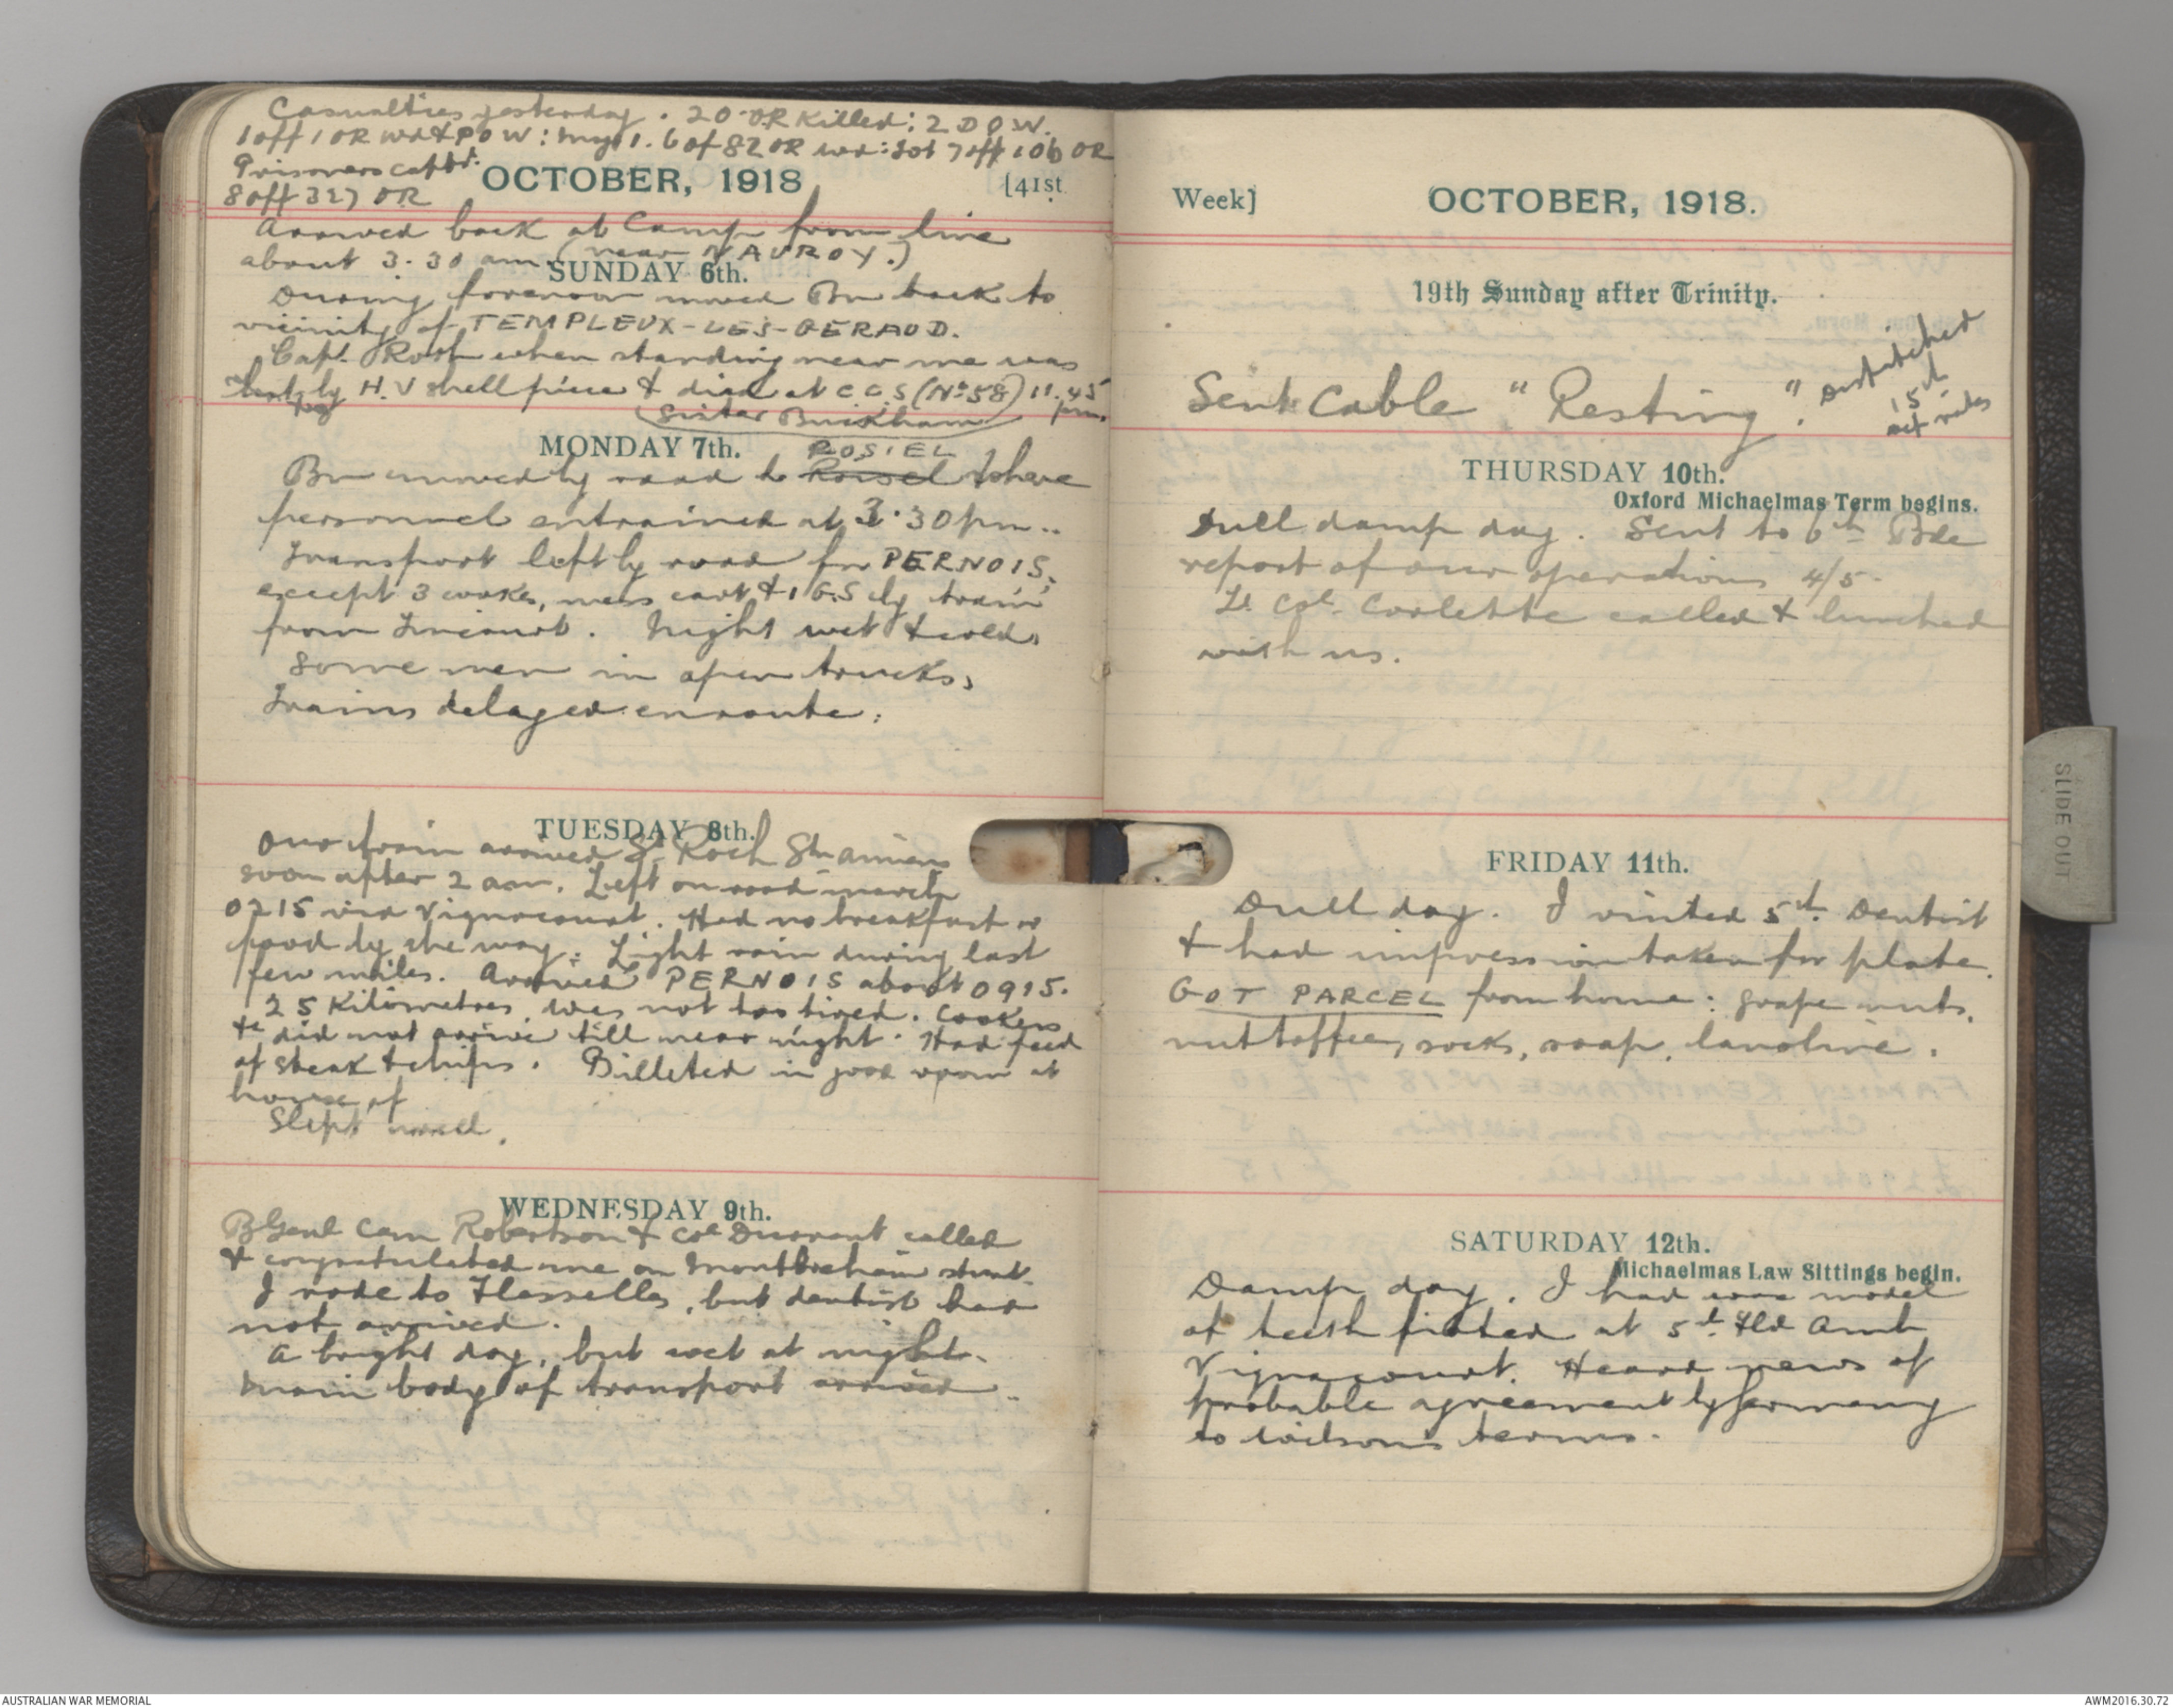 Casualties yesterday. 20 OR Killed: 2 D O W.
1 off 1 OR wd & P O W: Msg 1. 6 of 82 OR wd: Tot 7 off 106 OR
Prisoners captd.
8 off 327 OR
OCTOBER, 1918
[41st
Arrived back at Camp from line
about 3.30 am. (near NAUROY.)
SUNDAY 6th.
During forenoon moved Bn back to
vicinity of TEMPLEUX-LES-GERAUD.
Capt. Roth when standing near me was
by H.V shell piece & died at C C S (No 58) 11.45
pm.
Sister Buckham
MONDAY 7th.
ROSIEL
Bn moved by road to Roisel & there
personnel entrained at 3.30 pm..
Transport left by road for PERNOIS,
except 3 cookers, mess cart & 1 G.S by train
from Tincourt. Night wet & cold.
Some men in open trucks,
Trains delayed en route.
TUESDAY 8th.
Our train arrived St Roch Stn Amiens
soon after 2 am. Left on road march
0215 via Vignacourt. Had no breakfast or
food by the way. Light rain during last
few miles. Arrived PERNOIS about 0915.
25 Kilometres, was not too tired. Cookers
&c did not arrive till near night. Had feed
of steak & chips. Billeted in good room at
house of
Slept well.
WEDNESDAY 9th.
BGenl Cam Robertson & Col Durrant called
& congratulated me on Montbrehain stunt.
I rode to Flesselles, but dentist had
not arrived.
A bright day, but wet at night.
Main body of transport arrived.
Week]
OCTOBER, 1918.
19th Sunday after Trinity.
Sent Cable "Resting".
Despatched
15th
THURSDAY 10th.
Oxford Michaelmas Term begins.
Dull damp day. Sent to 6th Bde
report of our operations 4/5.
Lt Col. Corlette called & lunched
with us.
FRIDAY 11th.
Dull day. I visited 5th Dentist
& had impression taken for plate.
GOT PARCEL from home: grape nuts,
nut toffee, socks, soap, lanoline.
SATURDAY 12th.
Michaelmas Law Sittings begin.
Damp day. I had wax model
of teeth fitted at 5th Fld Amb
Vignacourt. Heard news of
probable agreement by Germany
to Wilson's terms.
SLIDE OUT
AUSTRALIAN WAR MEMORIAL
AWM2016.30.72